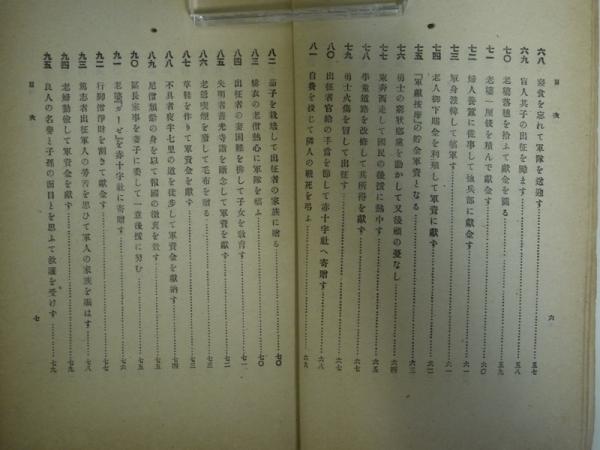 目次 六
六八 寝食を忘れて軍隊を送迎す 五七
六九 盲人其子の出征を励ます 五八
七〇 老婆落穂を拾ふて献金を図る 五九
七一 老婆一厘銭を積んで献金す 六〇
七二 婦人養蚕に従事して恤兵部に献金す 六一
七三 単身渡韓して犒軍す 六一
七四 老人御下賜金を利殖して軍資に献ず 六二
七五 『軍献按摩』の貯金軍資となる 六三
七六 勇士の窮状郷党を動かして又後顧の憂なし 六四
七七 東奔西走して国民の後援に熱中す 六五
七八 学童道路を改修して其所得を献ず 六六
七九 勇士火傷を冒して出征す 六七
八〇 出征者官給の手当を節して赤十字社へ寄贈す 六八
八一 自費を投じて隣人の戦死を弔ふ 六九
八二 茄子を栽培して出征者の家族に贈る 七〇
八三 緋衣の老僧熱心に軍隊を犒ふ 七〇
八四 出征者の妻困難を排して子女を教育す 七一
八五 失明者善光寺詣を断念して軍資金を献ず 七二
八六 老爺喫煙を廃して毛布を贈る 七三
八七 草鞋を作りて軍資金を献ず 七三
八八 不具者夜半七里の道を徒歩して軍資金を献納す 七四
八九 尼僧頽齢の身を以て報国の微衷を致す 七五
九〇 区長家事を妻子に委して一意後援に努む 七五
九一 老婆『ガーゼ』を赤十字社に寄贈す 七六
九二 行脚僧浄財を割きて献金す 七七
九三 篤志者出征軍人の労苦を思ひて軍人の家族を賑はす 七八
九四 老婦勤倹して軍資金を献ず 七九
九五 良人の名誉と子孫の面目とを思ふて救護を受けず 七九
目次 七